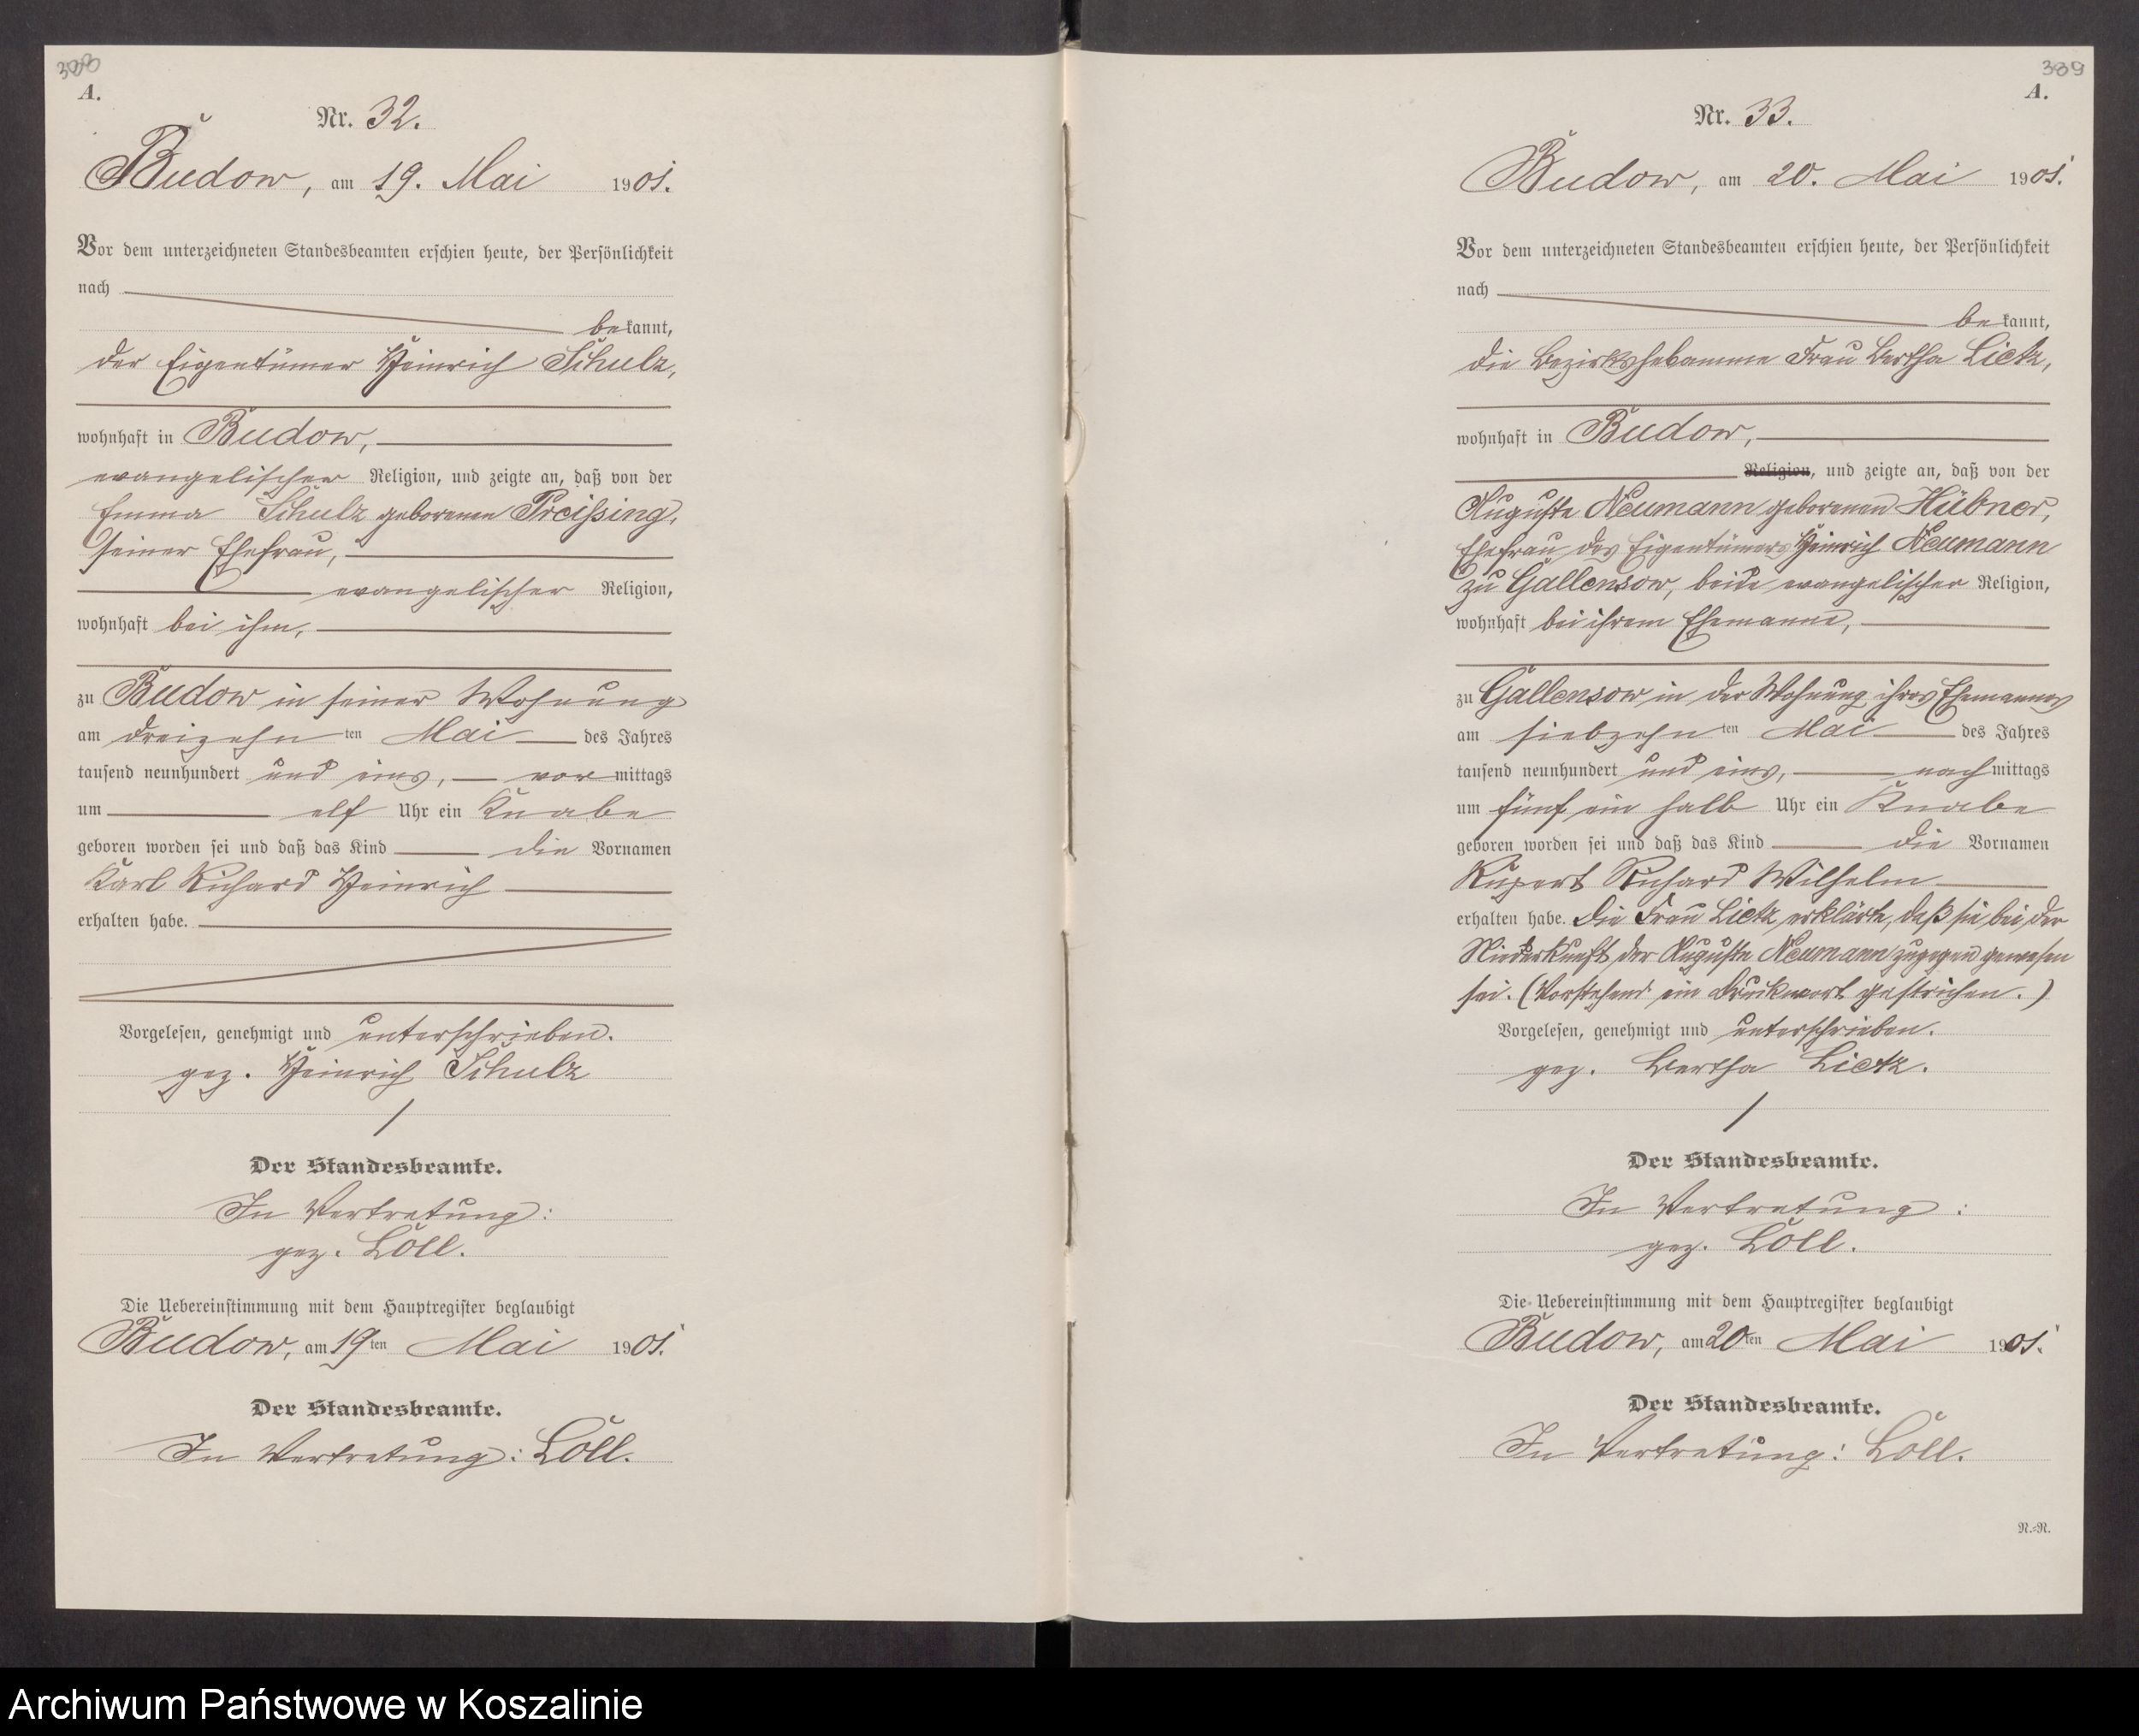 388
A.
Nr. 32.
Budow, am 19. Mai 1901.
Vor dem unterzeichneten Standesbeamten erschien heute, der Persönlichkeit
nach
bekannt,
der Eigentümer Heinrich Schulz,
wohnhaft in Budow,
evangelischer Religion, und zeigte an, daß von der
Emma Schulz geborenen Preißing,
seiner Ehefrau,
evangelischer Religion,
wohnhaft bei ihm,
zu Budow in seiner Wohnung
am dreizehn ten Mai des Jahres
tausend neunhundert und eins, vormittags
um elf Uhr ein Knabe
geboren worden sei und daß das Kind die Vornamen
Karl Richard Heinrich
erhalten habe.
Vorgelesen, genehmigt und unterschrieben.
gez. Heinrich Schulz
Der Standesbeamte.
In Vertretung:
gez. Löll.
Die Uebereinstimmung mit dem Hauptregister beglaubigt
Budow, am 19ten Mai 1901.
Der Standesbeamte.
In Vertretung: Löll.
389
A.
Nr. 33.
Budow, am 20. Mai 1901.
Vor dem unterzeichneten Standesbeamten erschien heute, der Persönlichkeit
nach
bekannt,
die Bezirkshebamme Frau Bertha Lietz,
wohnhaft in Budow,
Religion, und zeigte an, daß von der
Auguste Neumann geborenen Hübner,
Ehefrau des Eigentümers Heinrich Neumann
zu Gallensow, beide evangelischer Religion,
wohnhaft bei ihrem Ehemanne,
zu Gallensow in der Wohnung ihres Ehemannes
am siebzehn ten Mai des Jahres
tausend neunhundert und eins, nachmittags
um fünf ein halb Uhr ein Knabe
geboren worden sei und daß das Kind die Vornamen
Rupert Richard Wilhelm
erhalten habe. Die Frau Lietz erklärte, daß sie bei der
Niederkunft der Auguste Neumann zugegen gewesen
sei. (Vorstehend ein Druckwort gestrichen.)
Vorgelesen, genehmigt und unterschrieben.
gez. Bertha Lietz.
Der Standesbeamte.
In Vertretung:
gez. Löll.
Die Uebereinstimmung mit dem Hauptregister beglaubigt
Budow, am 20ten Mai 1901.
Der Standesbeamte.
In Vertretung: Löll.
N.=N.
Archiwum Państwowe w Koszalinie